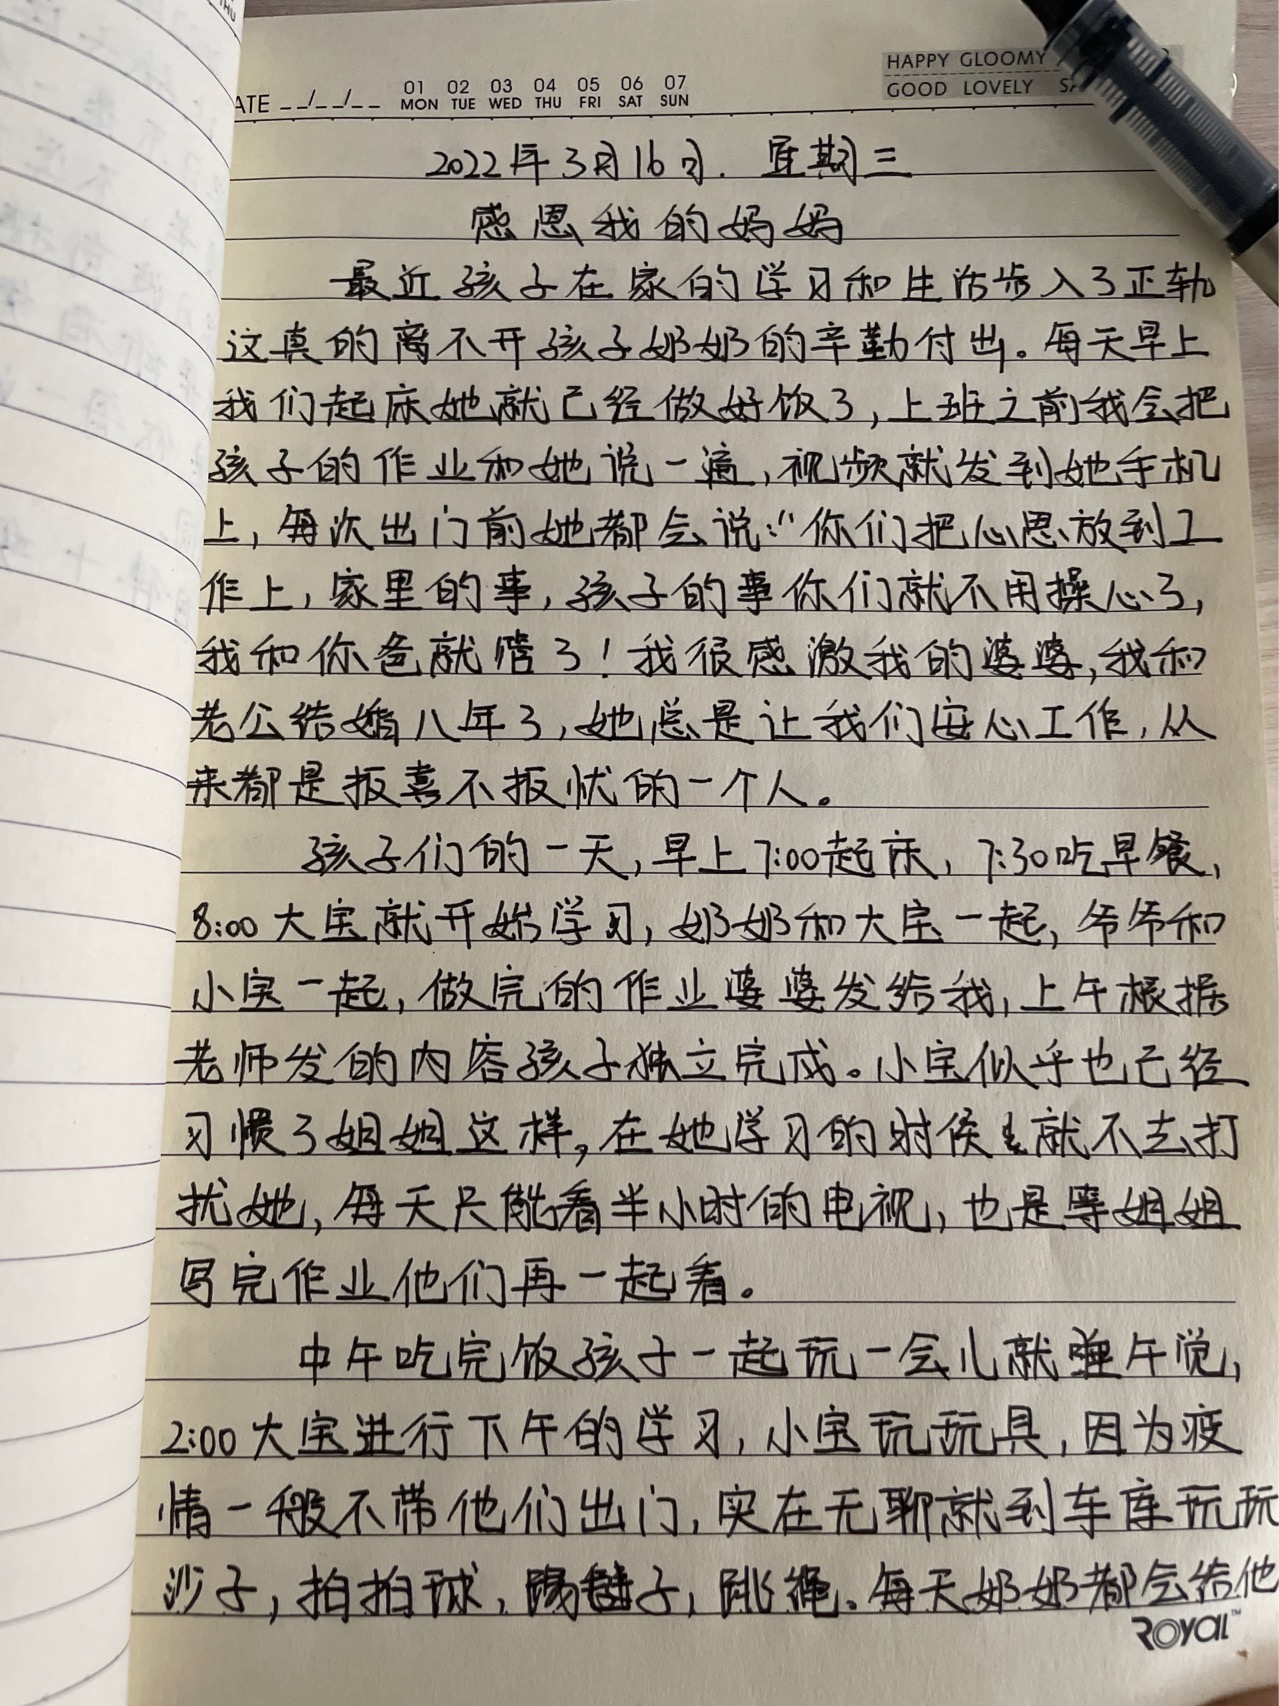 ATE __/__/__
01 02 03 04 05 06 07
MON TUE WED THU FRI SAT SUN
HAPPY GLOOMY
GOOD LOVELY
2022年3月16日. 星期三
感恩我的妈妈
最近孩子在家的学习和生活步入了正轨
这真的离不开孩子奶奶的辛勤付出。每天早上
我们起床她就已经做好饭了,上班之前我会把
孩子的作业和她说一遍,视频就发到她手机
上,每次出门前她都会说:“你们把心思放到工
作上,家里的事,孩子的事你们就不用操心了,
我和你爸就管了!我很感激我的婆婆,我和
老公结婚八年了,她总是让我们安心工作,从
来都是报喜不报忧的一个人。
孩子们的一天,早上7:00起床,7:30吃早餐,
8:00大宝就开始学习,奶奶和大宝一起,爷爷和
小宝一起,做完的作业婆婆发给我,上午根据
老师发的内容孩子独立完成。小宝似乎也已经
习惯了姐姐这样,在她学习的时候就不去打
扰她,每天只能看半小时的电视,也是等姐姐
写完作业他们再一起看。
中午吃完饭孩子一起玩一会儿就睡午觉,
2:00大宝进行下午的学习,小宝玩玩具,因为疫
情一般不带他们出门,实在无聊就到车库玩玩
沙子,拍拍球,踢毽子,跳绳。每天奶奶都会给他
ROYAL™